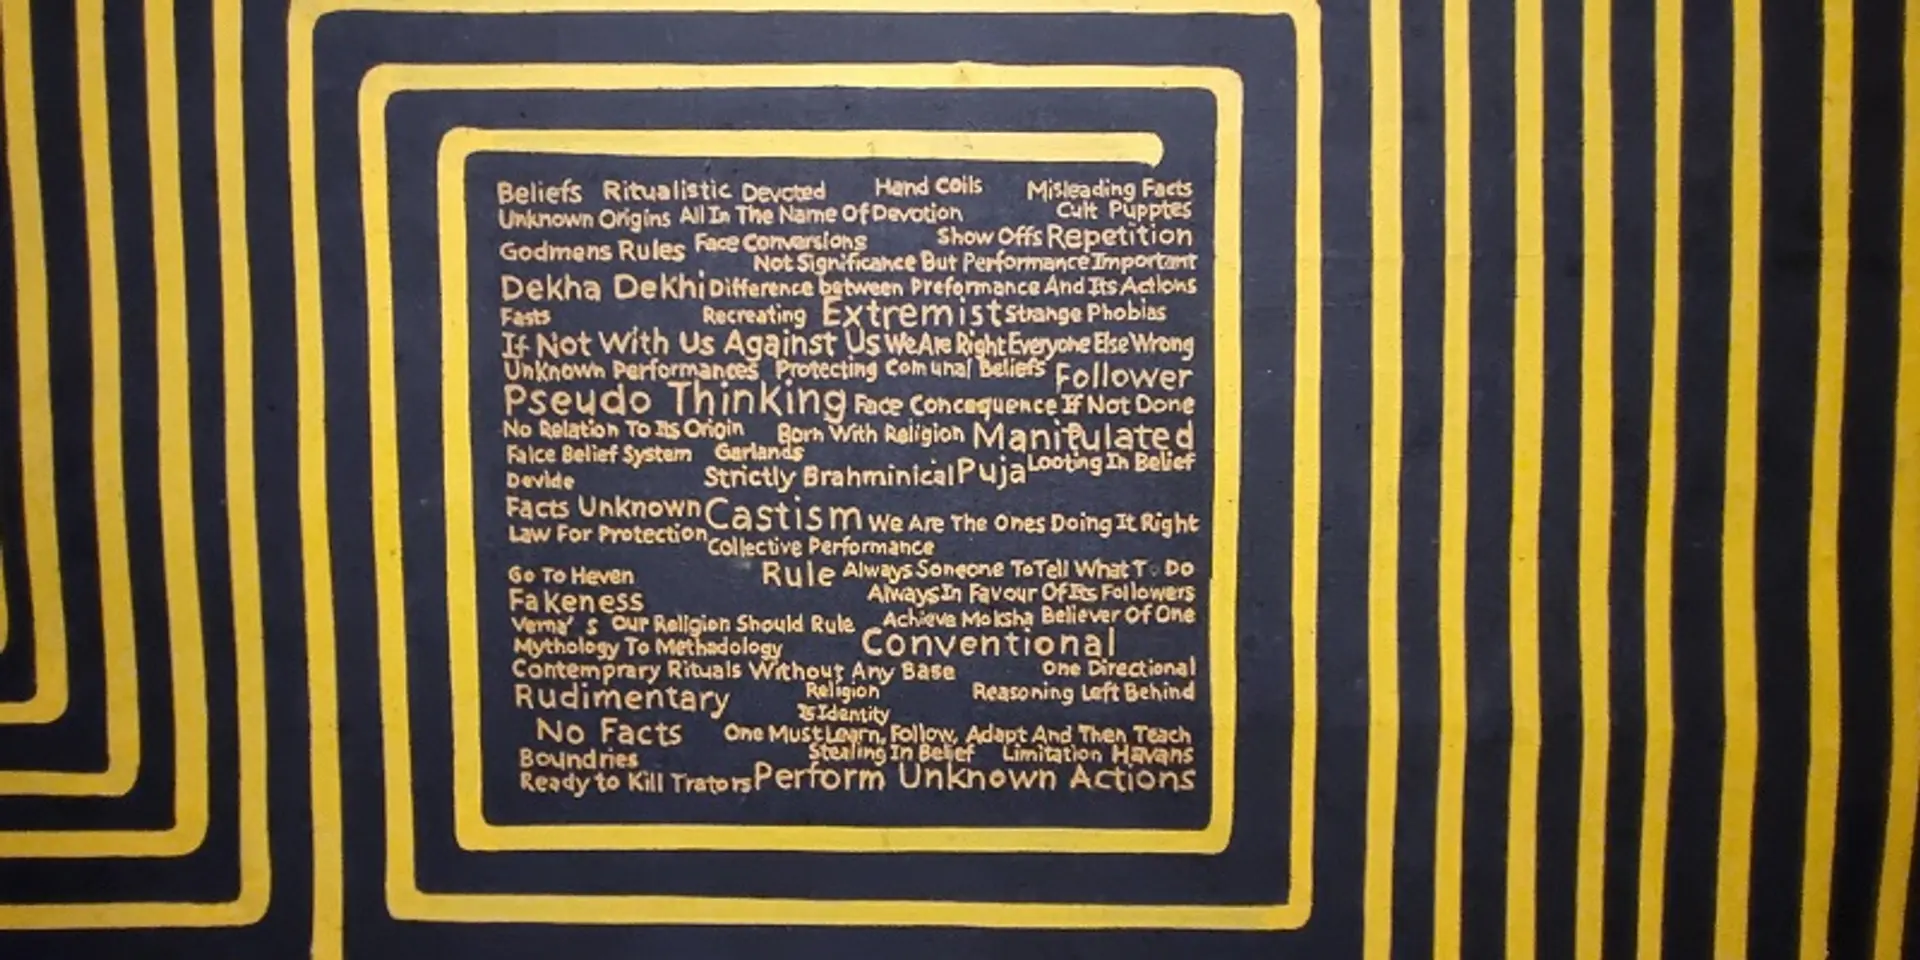 Beliefs Ritualistic Devoted Hand Coils Misleading Facts
Unknown Origins All In The Name Of Devotion Cult Pupptes
Godmens Rules Face Conversions Show Offs Repetition
Not Significance But Performance Important
Dekha Dekhi Difference between Preformance And Its Actions
Fasts Recreating Extremist Strange Phobias
If Not With Us Against Us We Are Right Everyone Else Wrong
Unknown Performances Protecting Comunal Beliefs Follower
Pseudo Thinking Face Concequence If Not Done
No Relation To Its Origin Born With Religion Manipulated
Falce Belief System Garlands Looting In Belief
Devide Strictly Brahminical Puja
Facts Unknown Castism We Are The Ones Doing It Right
Law For Protection Collective Performance
Go To Heven Rule Always Someone To Tell What T Do
Fakeness Always In Favour Of Its Followers
Verna's Our Religion Should Rule Achieve Moksha Believer Of One
Mythology To Methadology Conventional
Contemprary Rituals Without Any Base One Directional
Rudimentary Religion Reasoning Left Behind
Is Identity
No Facts One Must Learn, Follow, Adapt And Then Teach
Boundries Stealing In Belief Limitation Havans
Ready to Kill Trators Perform Unknown Actions